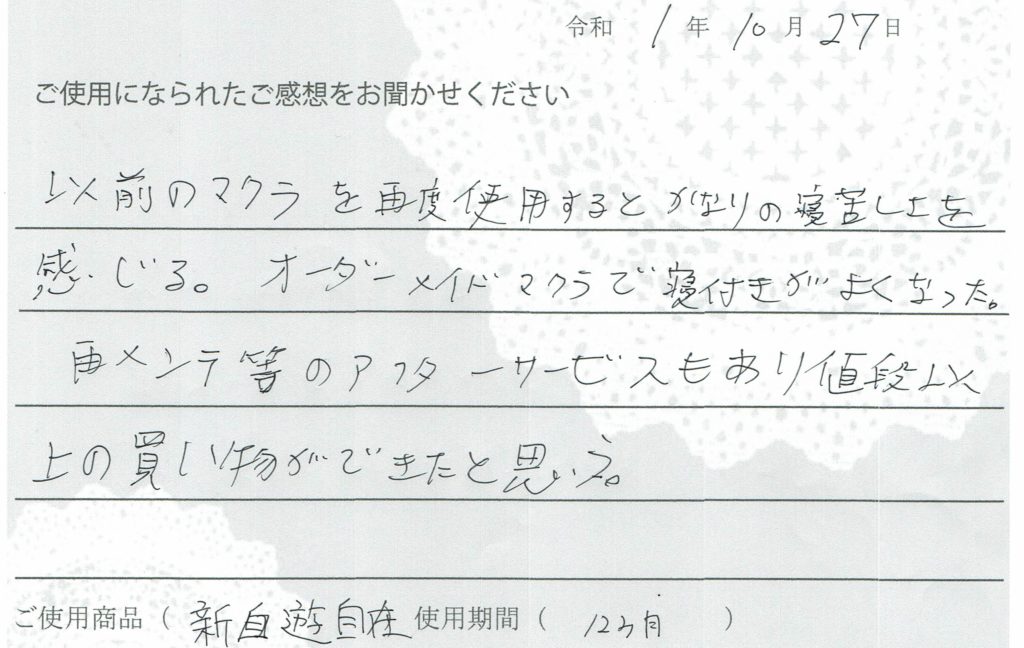 令和 1年 10月 27日
ご使用になられたご感想をお聞かせください
以前のマクラを再度使用するとかなりの寝苦しさを
感じる。オーダーメイドマクラで寝付きがよくなった。
再メンテ等のアフターサービスもあり値段以
上の買い物ができたと思う。
ご使用商品（新自遊自在 使用期間（12ヵ月）